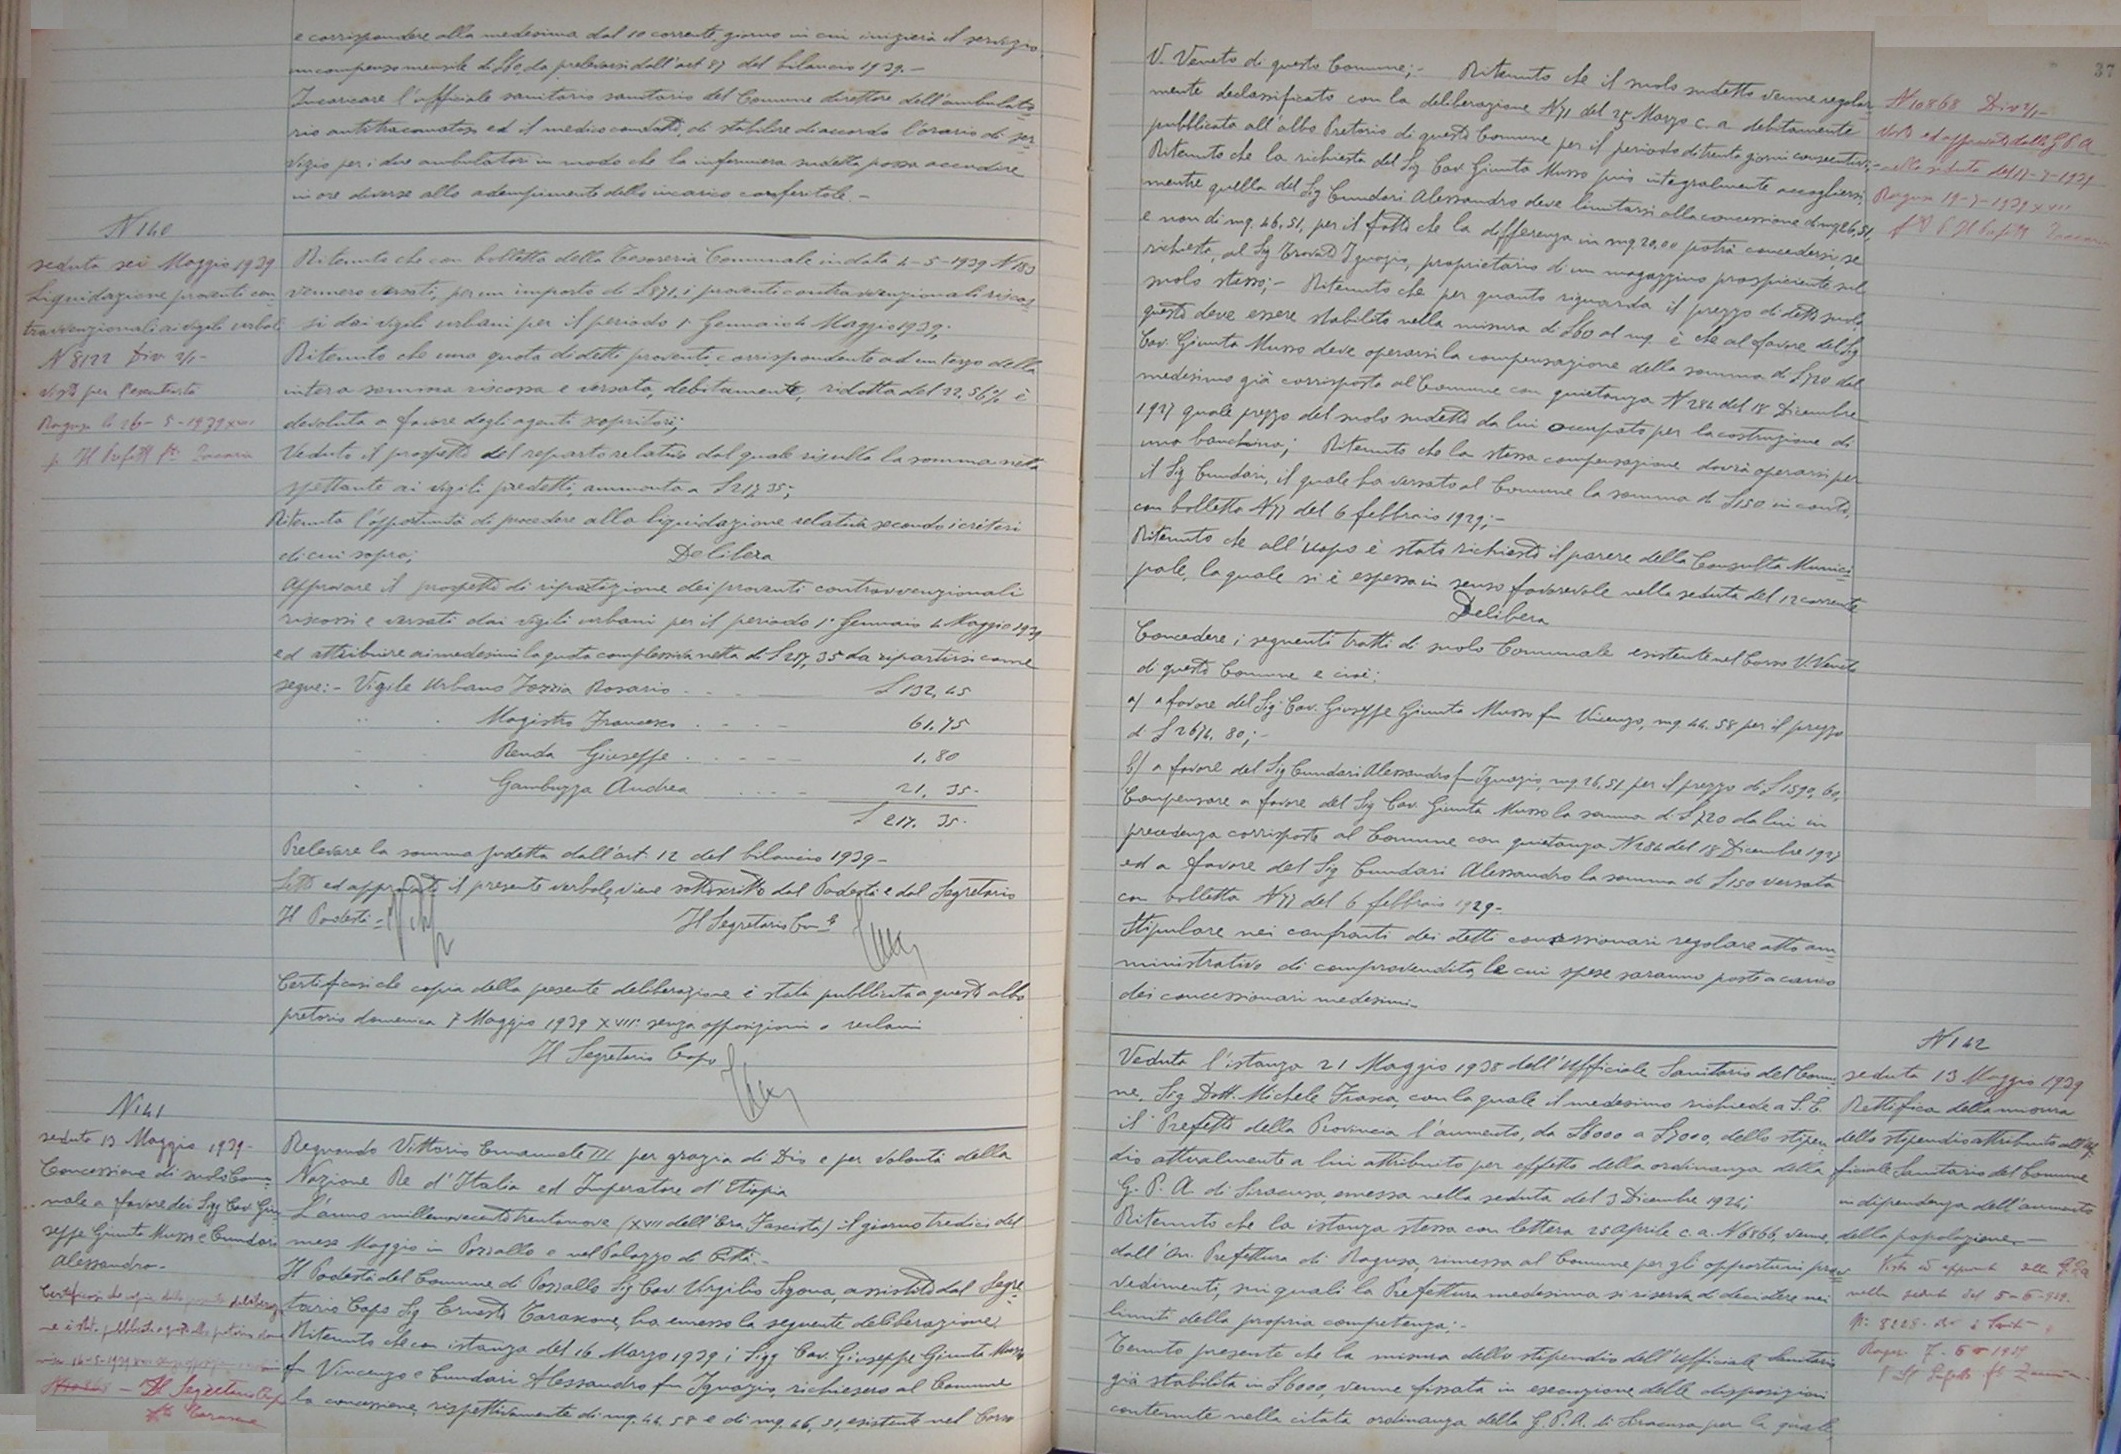 e corrispondere alla medesima dal 10 corrente, giorno in cui inizierà il servizio,
un compenso mensile di £60, da prelevarsi dall'art 87 del bilancio 1939.-
Incaricare l'ufficiale sanitario sanitario del Comune direttore dell'ambulato
rio antitracomatoso ed il medico condotto, di stabilire di accordo l'orario di ser
vizio per i due ambulatori in modo che la infermiera sudetta possa accudire
in ore diverse allo adempimento dello incarico conferitole.-
N 140
seduta sei Maggio 1939
Liquidazione proventi con
travvenzionali ai vigili urbani
N 8122 Div 2/1-
visto per l'esecutorietà
Ragusa li 26-5-1939 XVII
p. Il Prefetto fto Zaccaria
Ritenuto che con bolletta della Tesoreria Comunale in data 4-5-1939 N 183
vennero versati, per un importo di £ 871, i proventi contravvenzionali riscos
si dai vigili urbani per il periodo 1° Gennaio 4 Maggio 1939;
Ritenuto che una quota di detti proventi, corrispondente ad un terzo della
intera somma riscossa e versata, debitamente, ridotta del 22,56% è
devoluta a favore degli agenti scopritori;
Veduto il prospetto del reparto relativo dal quale risulta la somma netta
spettante ai vigili predetti, ammonta a £ 217,35;
Ritenuta l'opportunità di procedere alla liquidazione relativa secondo i criteri
di cui sopra; Delibera
Approvare il prospetto di ripartizione dei proventi contravvenzionali
riscossi e versati dai vigili urbani per il periodo 1° Gennaio 4 Maggio 1939
ed attribuire ai medesimi la quota complessiva netta di £ 217,35 da ripartirsi come
segue:- Vigile Urbano Iozzia Rosario £ 132,45
" " Magistro Francesco 61.75
" " Renda Giuseppe 1.80
" " Gambuzza Andrea 21.35-
£ 217.35-
Prelevare la somma sudetta dall'art. 12 del bilancio 1939-
Letto ed approvato il presente verbale, viene sottoscritto dal Podestà e dal Segretario
Il Podestà = Il Segretario Com.le
Certificasi che copia della presente deliberazione è stata pubblicata a questo albo
pretorio domenica 7 Maggio 1939 XVII senza opposizioni o reclami
Il Segretario Capo
N 141
seduta 13 Maggio 1939-
Concessione di suolo Comu
nale a favore dei Sigg Cav. Giu
seppe Giunta Musso e Cundari
Alessandro-
Certificasi che copia della presente deliberazio
ne è stata pubblicata a questo albo pretorio
Il Segretario Capo
fto Tarascone
Regnando Vittorio Emanuele III per grazia di Dio e per volontà della
Nazione Re d'Italia ed Imperatore d'Etiopia
L'anno millenovecentotrentanove (XVII dell'Era Fascista) il giorno tredici del
mese Maggio in Pozzallo e nel Palazzo di Città.-
Il Podestà del Comune di Pozzallo Sig Cav Virgilio Sigona, assistito dal Segre
tario Capo Sig Ernesto Tarascone, ha emesso la seguente deliberazione;
Ritenuto che con istanza del 16 Marzo 1939 i Sigg Cav. Giuseppe Giunta Musso
fu Vincenzo e Cundari Alessandro fu Ignazio, richiesero al Comune
la concessione, rispettivamente di mq. 44.58 e di mq. 46,51, esistente nel Corso
37
V. Veneto di questo Comune;- Ritenuto che il suolo sudetto venne regolar
mente declassificato con la deliberazione N 71 del 25 Marzo c. a. debitamente
pubblicata all'albo Pretorio di questo Comune per il periodo di trenta giorni consecutivi;-
Ritenuto che la richiesta del Sig Cav Giunta Musso può integralmente accogliersi
mentre quella del Sig Cundari Alessandro deve limitarsi alla concessione di mq 26,51,
e non di mq. 46,51, per il fatto che la differenza in mq. 20,00 potrà concedersi, se
richiesta, al Sig Trovato Ignazio, proprietario di un magazzino prospiciente sul
suolo stesso;- Ritenuto che per quanto riguarda il prezzo di detto suolo
questo deve essere stabilito nella misura di £60 al mq. è che al favore del Sig
Cav. Giunta Musso deve operarsi la compensazione della somma di £720 dal
medesimo già corrisposta al Comune con quietanza N 284 del 18 Dicembre
1927 quale prezzo del suolo sudetto da lui occupato per la costruzione di
una banchina; Ritenuto che la stessa compensazione dovrà operarsi per
il Sig Cundari, il quale ha versato al Comune la somma di £150 in conto,
con bolletta N 77 del 6 febbraio 1929;-
Ritenuto che all'uopo è stato richiesto il parere della Consulta Munici
pale, la quale si è espressa in senso favorevole nella seduta del 12 corrente
Delibera
Concedere i seguenti tratti di suolo Comunale esistente nel Corso V. Veneto
di questo Comune e cioè:
a) a favore del Sig. Cav. Giuseppe Giunta Musso fu Vincenzo, mq. 44.58 per il prezzo
di £ 2674.80;-
b) a favore del Sig Cundari Alessandro fu Ignazio, mq 26,51 per il prezzo di £ 1590,60,
Compensare a favore del Sig Cav. Giunta Musso la somma di £720 da lui in
precedenza corrisposta al Comune con quietanza N 284 del 18 Dicembre 1927
ed a favore del Sig Cundari Alessandro la somma di £150 versata
con bolletta N 77 del 6 febbraio 1929-
Stipulare nei confronti dei detti concessionari regolare atto am
ministrativo di compravendita, le cui spese saranno poste a carico
dei concessionari medesimi-
N 10868 Div 2/1-
Visto ed approvato dalla G.P.A
nella seduta del 17-7-1939
Ragusa 19-7-1939 XVII
Veduta l'istanza 21 Maggio 1938 dell'Ufficiale Sanitario del Comu
ne, Sig Dott. Michele Frasca, con la quale il medesimo richiede a S.E.
il Prefetto della Provincia l'aumento, da £6000 a £7000, dello stipen
dio attualmente a lui attribuito per effetto della ordinanza della
G. P. A. di Siracusa, emessa nella seduta del 3 Dicembre 1924;
Ritenuto che la istanza stessa con lettera 25 Aprile c. a. N 6866, venne,
dall'On. Prefettura di Ragusa, rimessa al Comune per gli opportuni prov
vedimenti, sui quali la Prefettura medesima si riserva di decidere nei
limiti della propria competenza;-
Tenuto presente che la misura dello stipendio dell'Ufficiale Sanitario
già stabilita in £6000, venne fissata in esecuzione delle disposizioni
contenute nella citata ordinanza della G. P. A. di Siracusa per la quale,
N 142
seduta 13 Maggio 1939
Rettifica della misura
dello stipendio attribuito all'Uf
ficiale Sanitario del Comune
in dipendenza dell'aumento
della popolazione-
Visto ed approvato dalla G.P.A
nella seduta del 5-6-939.
N. 8228
Ragusa 7-6-1939